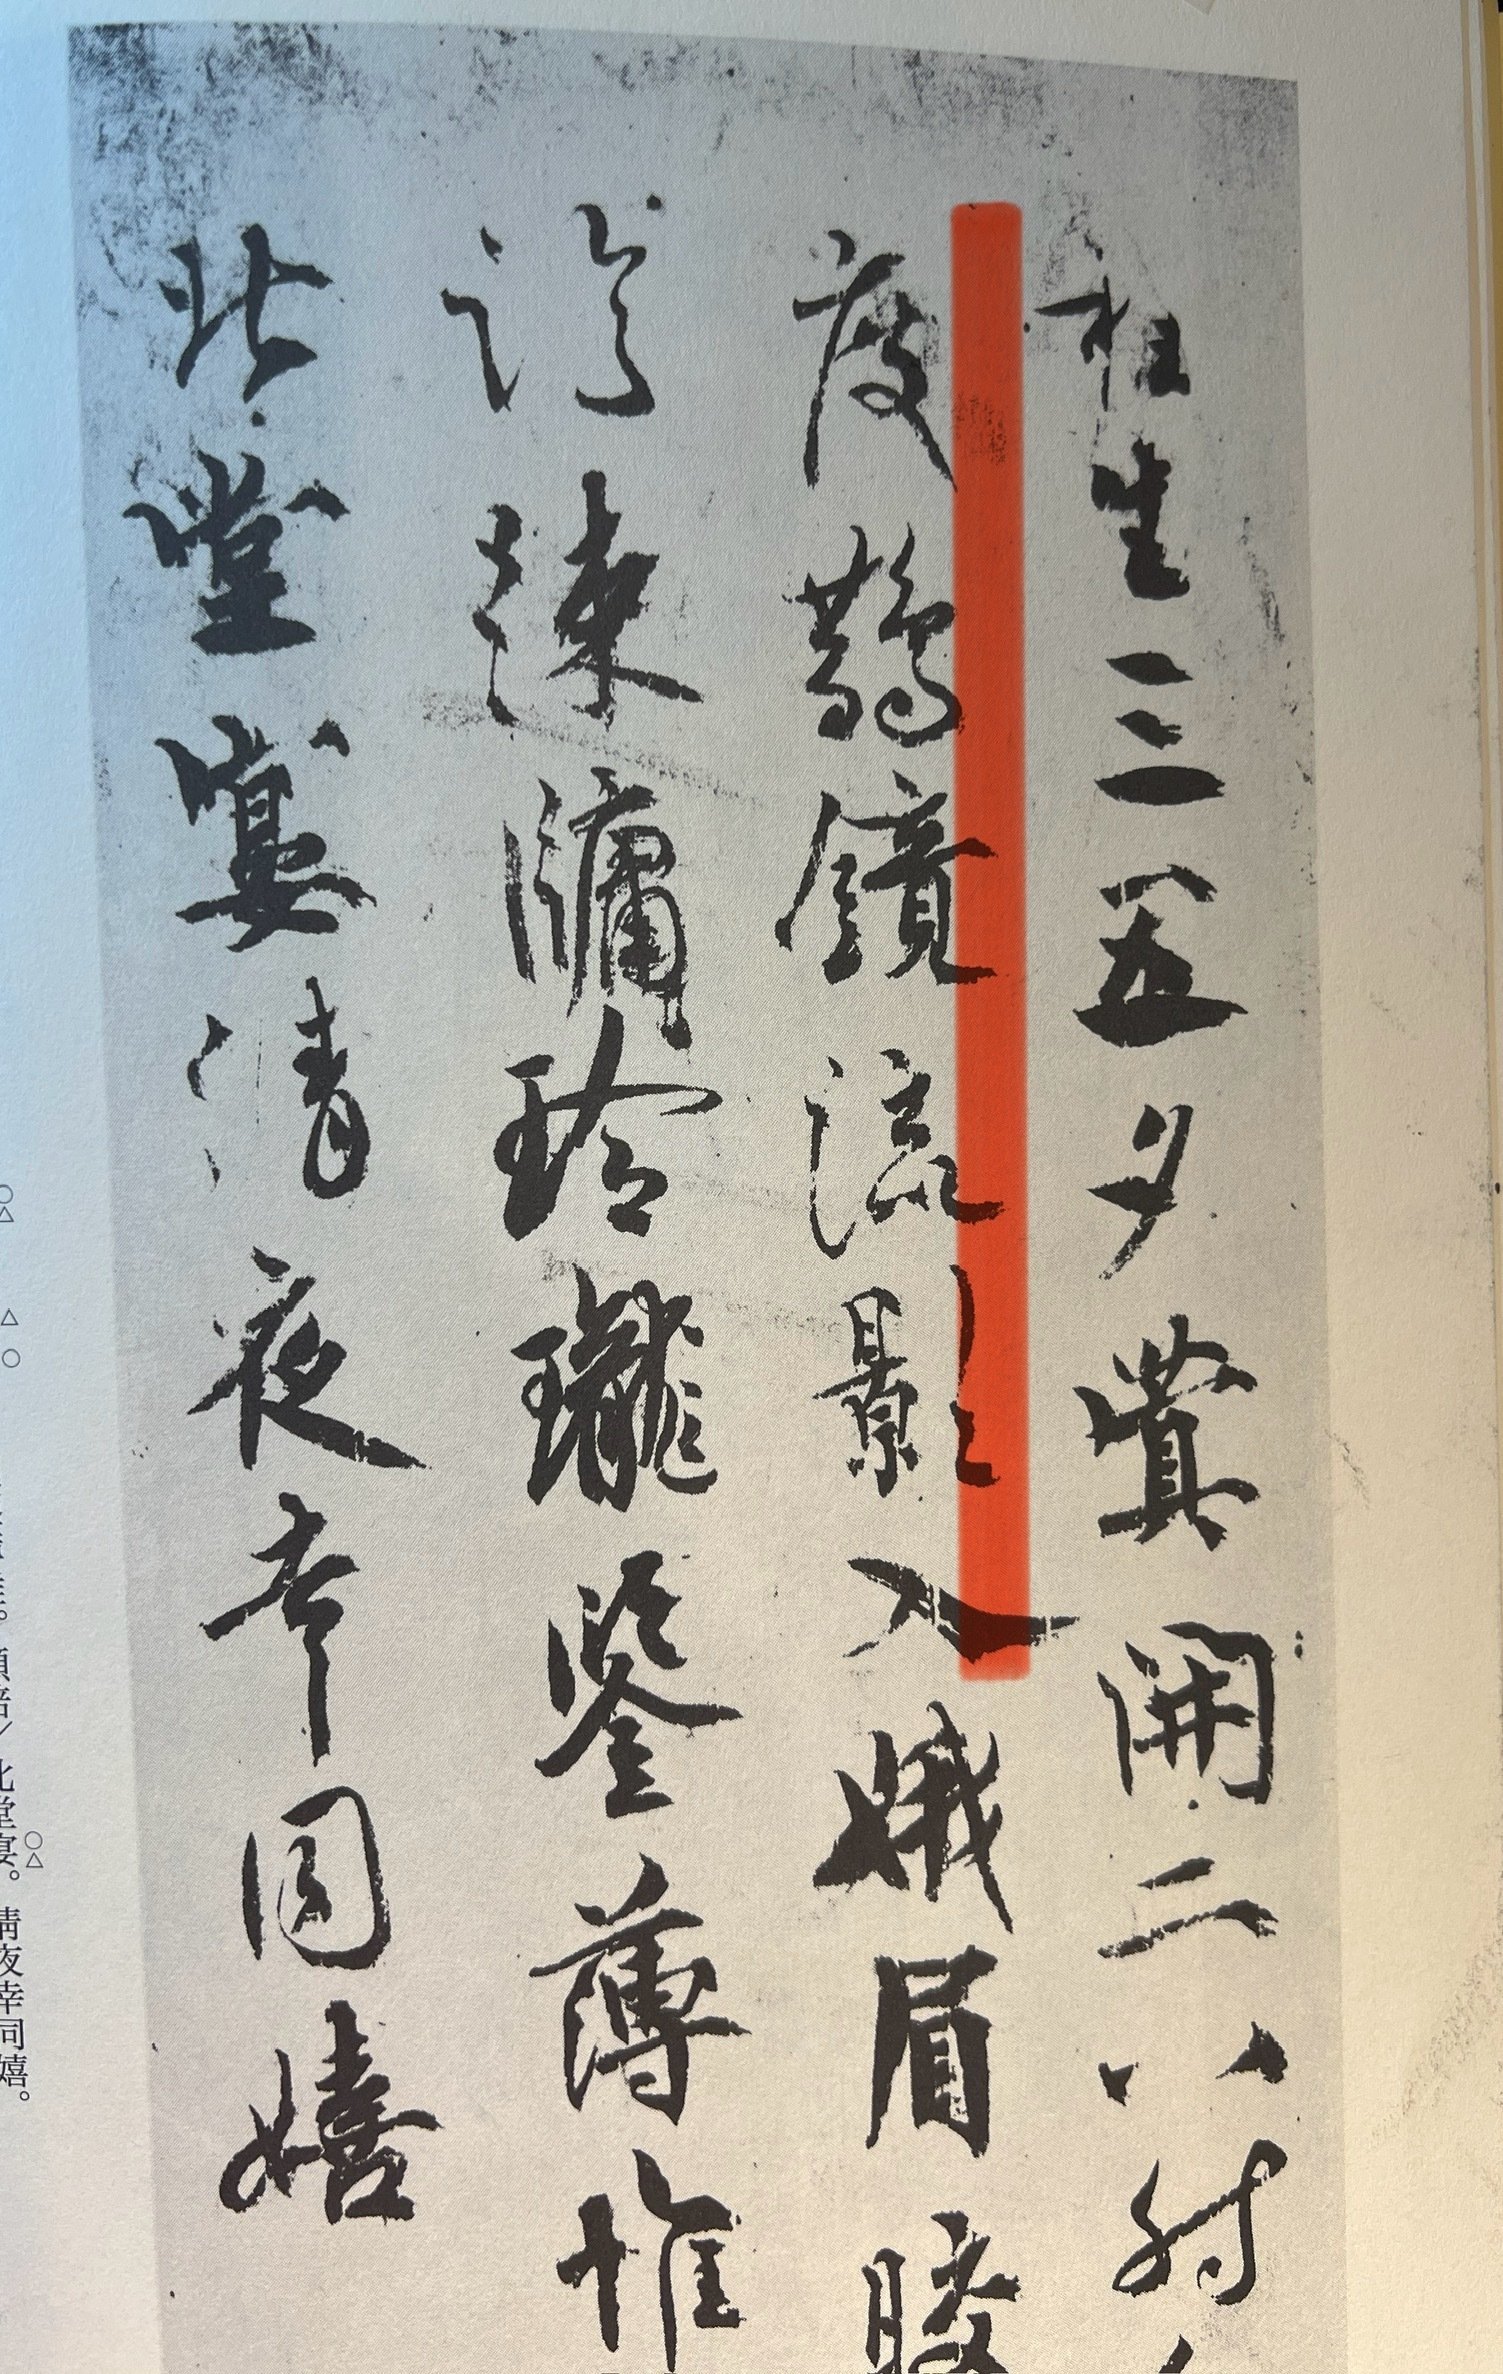 桂生三五夕蓂開二八時
度鵲鏡流影入娥眉皎
臨疎牖玲瓏鑒薄帷
北堂宴清夜幸同嬉
願陪/北堂宴。清夜幸同嬉。